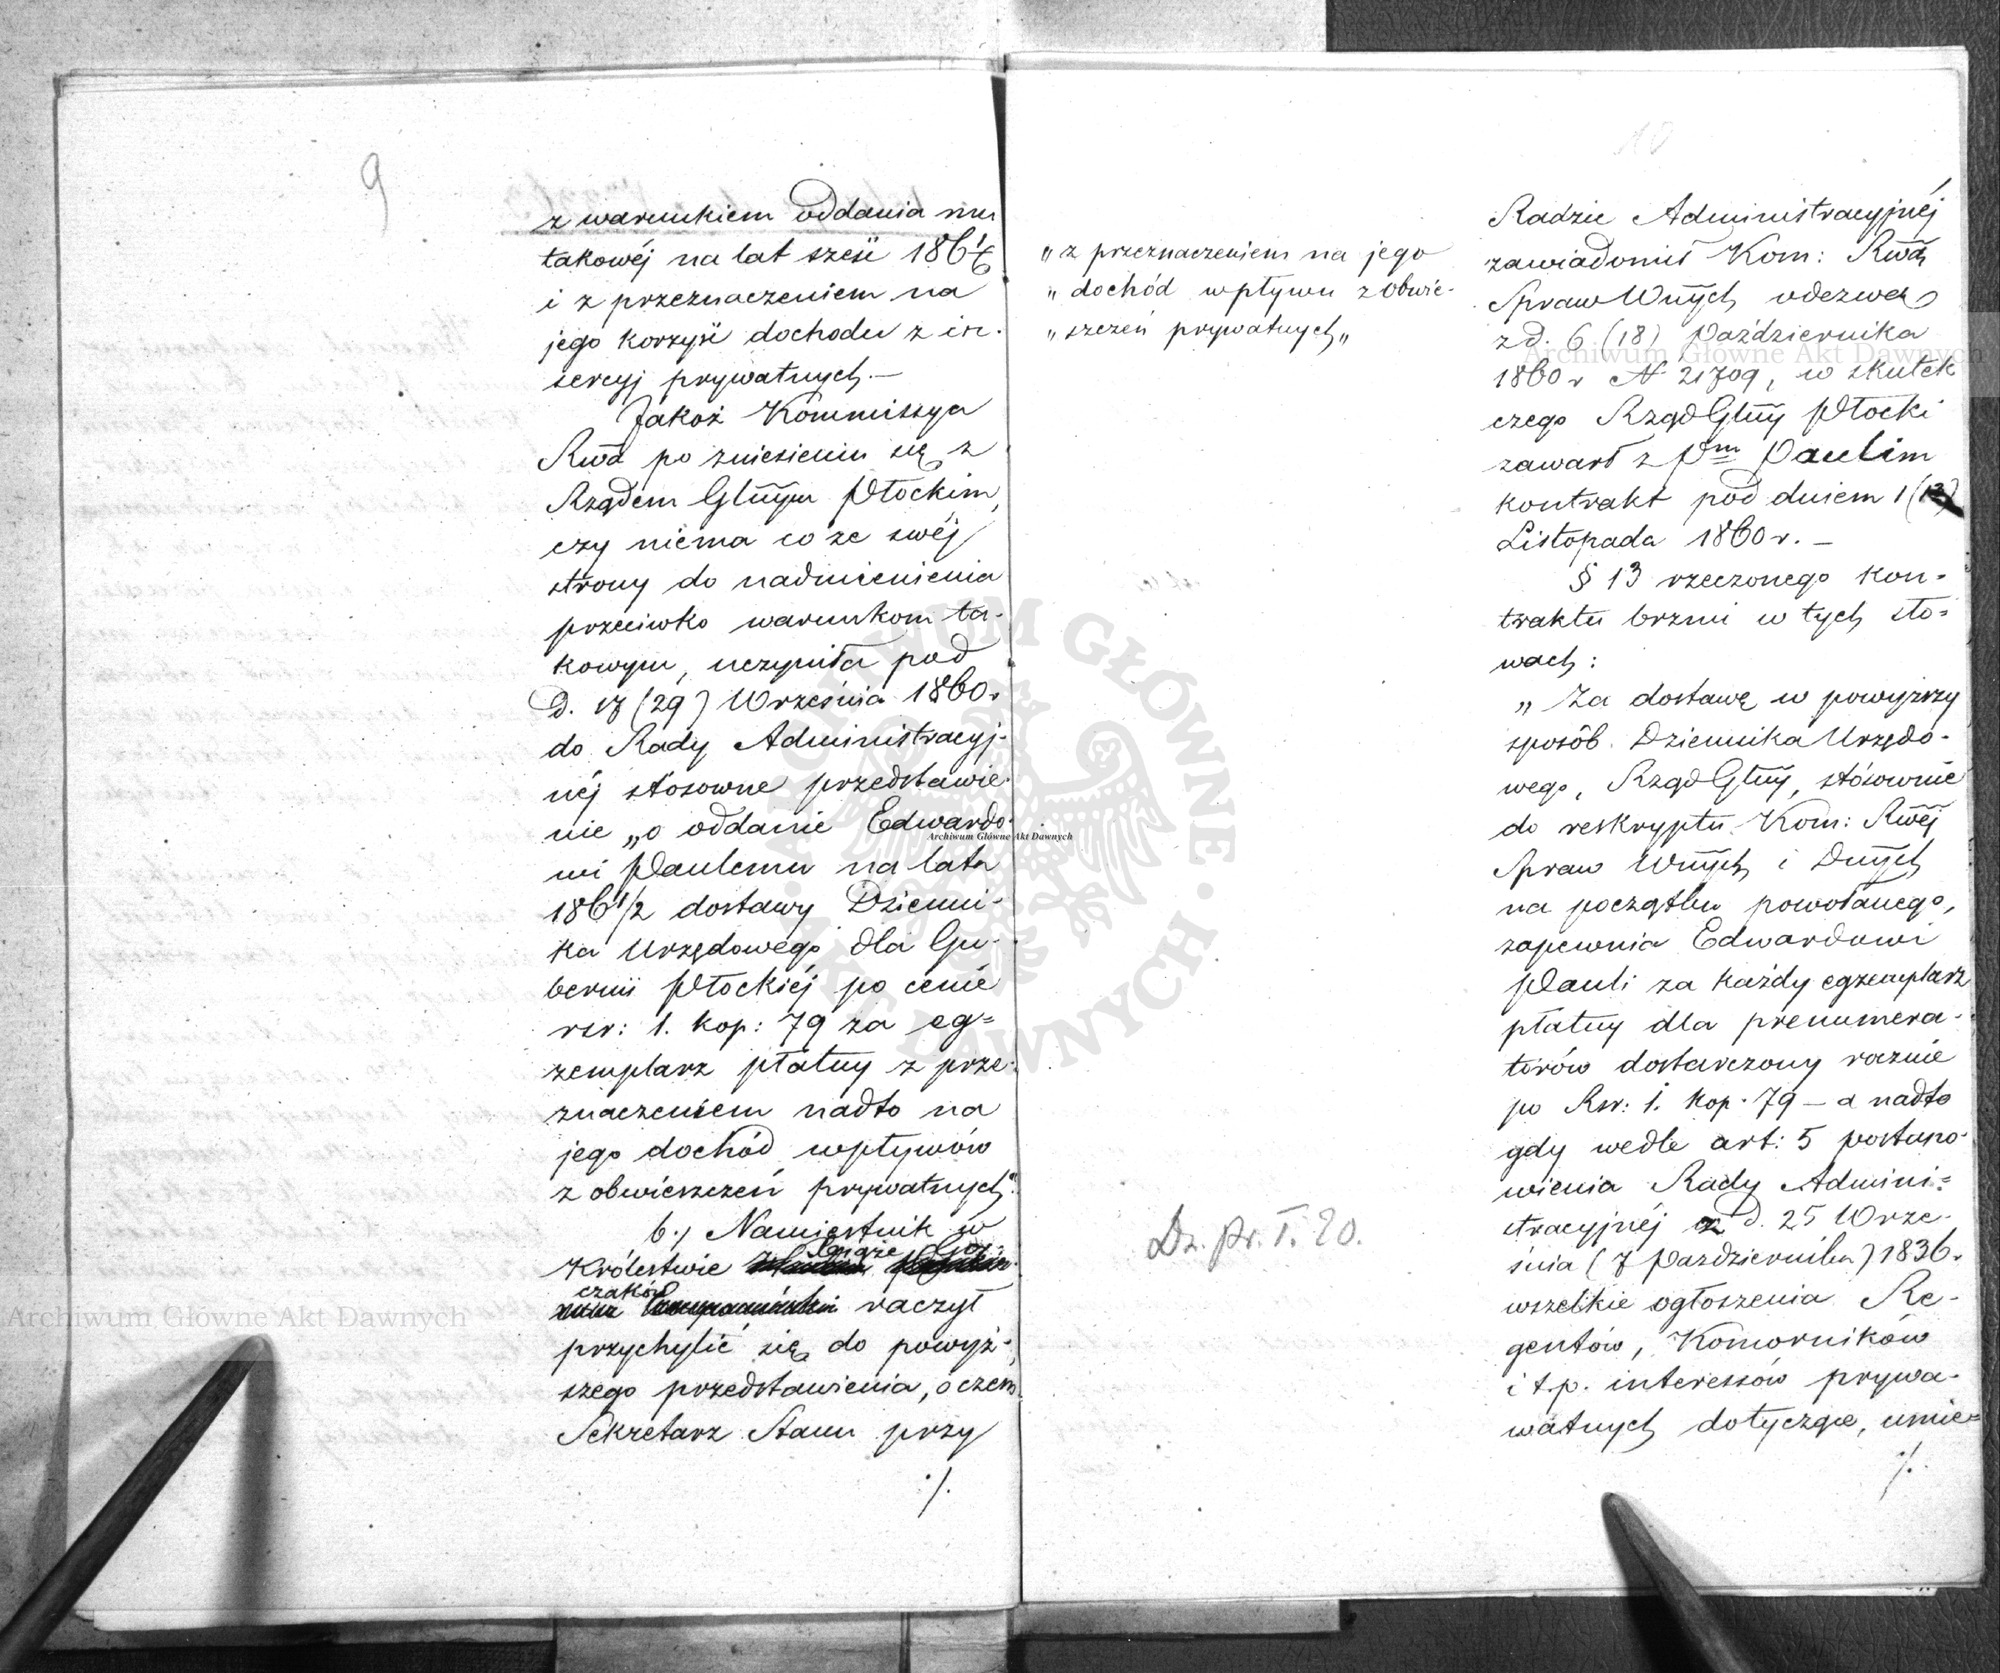 9
z warunkiem oddania mu
takowéj na lat sześć 186 1/6
i z przeznaczeniem na
jego korzyść dochodu z in-
sercyj prywatnych.—
Jakoż Kommissya
Rwa po zniesieniu się z
Rządem Glnym Płockim,
czy niema co ze swéj
strony do nadmienienia
przeciwko warunkom ta-
kowym, uczyniła pod
d. 17 (29) Września 1860 r
do Rady Administracyj-
néj stósowne przedstawie-
nie „o oddanie Edwardo-
wi Paulemu na lata
186 1/2 dostawy Dzienni-
ka Urzędowego dla Gu-
bernii Płockiéj po cenie
rsr: 1. kop: 79 za eg=
zemplarz płatny z prze-
znaczeniem nadto na
jego dochód wpływów
z obwieszczeń prywatnych"
6.) Namiestnik w
Królestwie Xiąże Gor-
czaków raczył
przychylić się do powyż-
szego przedstawienia, o czem
Sekretarz Stanu przy
./.
10
„z przeznaczeniem na jego
„dochód wpływu z obwie-
„szczeń prywatnych„
Dz. pr. T. 20.
Radzie Administracyjnéj
zawiadomił Kom: Rwą
Spraw Wnych odezwą
z d. 6 (18) Października
1860 r N 21709, w skutek
czego Rząd Glny Płocki
zawarł z Pm Paulim
kontrakt pod dniem 1 (13)
Listopada 1860 r. —
§ 13 rzeczonego kon-
traktu brzmi w tych sło-
wach:
„Za dostawę w powyższy
sposób Dziennika Urzędo-
wego, Rząd Glny, stósownie
do reskryptu Kom: Rwéj
Spraw Wnych i Dnych
na początku powołanego,
zapewnia Edwardowi
Pauli za każdy egzemplarz
płatny dla prenumera-
torów dostarczony rocznie
po Rsr: 1. kop. 79 — a nadto
gdy wedle art: 5 postano-
wienia Rady Admini-
stracyjnéj z d. 25 Wrze-
śnia (7 Października) 1836 r
wszelkie ogłoszenia Re-
gentów, Komorników
i t.p. interessów prywa-
watnych dotyczące, umie=
./.
Archiwum Główne Akt Dawnych
Archiwum Główne Akt Dawnych
Archiwum Główne Akt Dawnych
ARCHIWUM GŁÓWNE · AKT DAWNYCH ·